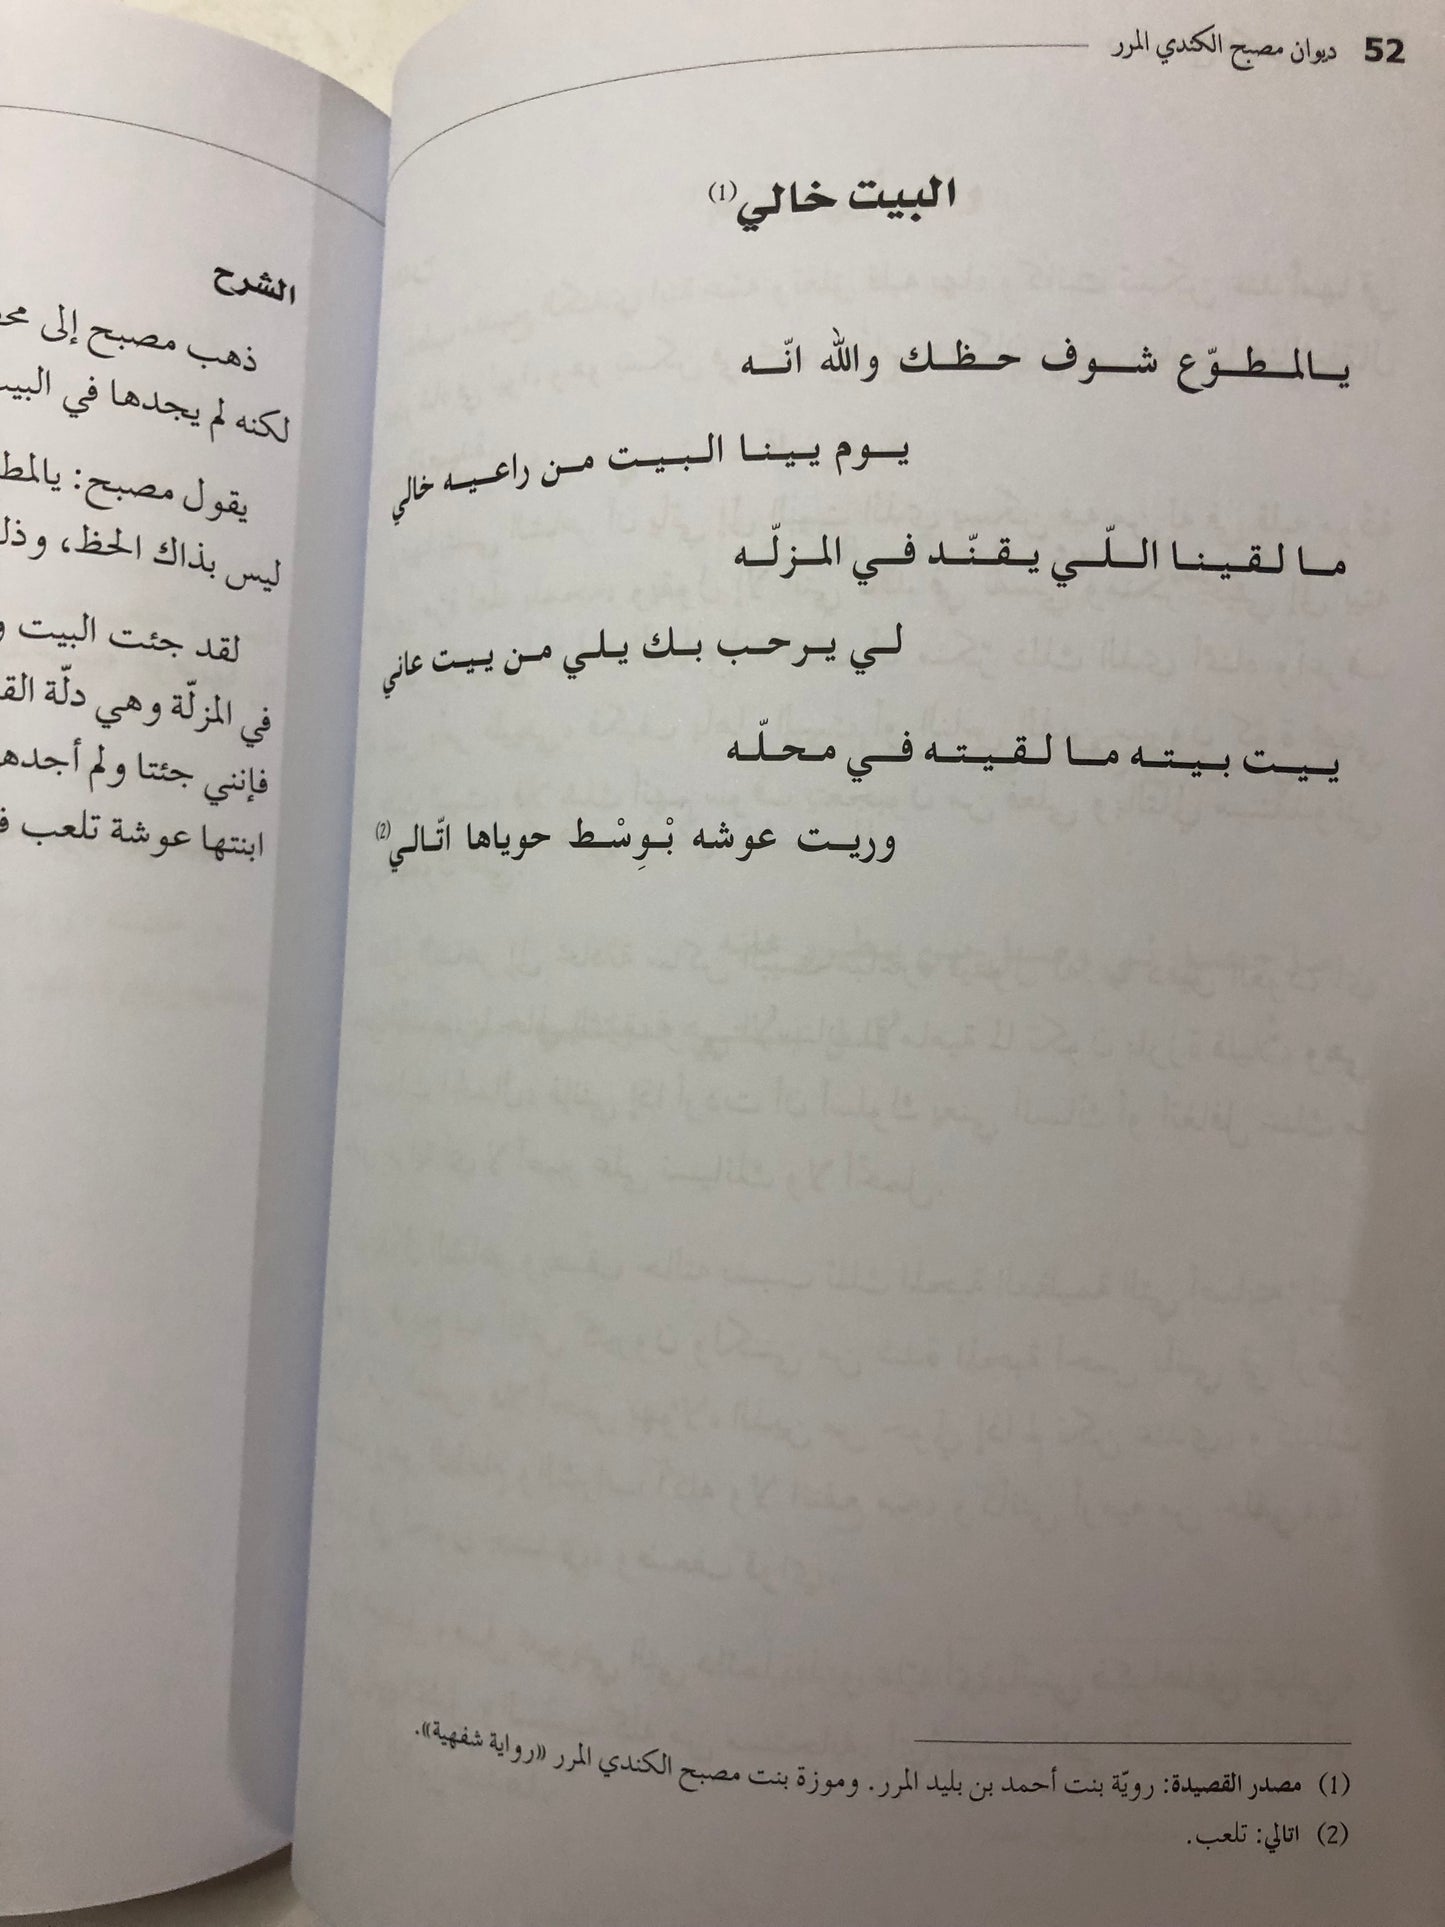 52 ديوان مصبح الكندي المرر
البيت خالي(1)
يالمطوّع شوف حظك والله انّه
يوم يينا البيت من راعيه خالي
ما لقينا اللّي يقنّد في المزلّه
لي يرحب بك يلي من ييت عاني
ييت بيته ما لقيته في محلّه
وريت عوشه بْوِسْط حوياها اتّالي(2)
(1) مصدر القصيدة: رويّة بنت أحمد بن بليد المرر. وموزة بنت مصبح الكندي المرر «رواية شفهية».
(2) اتالي: تلعب.
الشرح
ذهب مصبح إلى
لكنه لم يجدها في
يقول مصبح:
ليس بذاك الحظ،
لقد جئت البيت
في المزلّة وهي دلّة
فإنني جئتا ولم
ابنتها عوشة تلعب